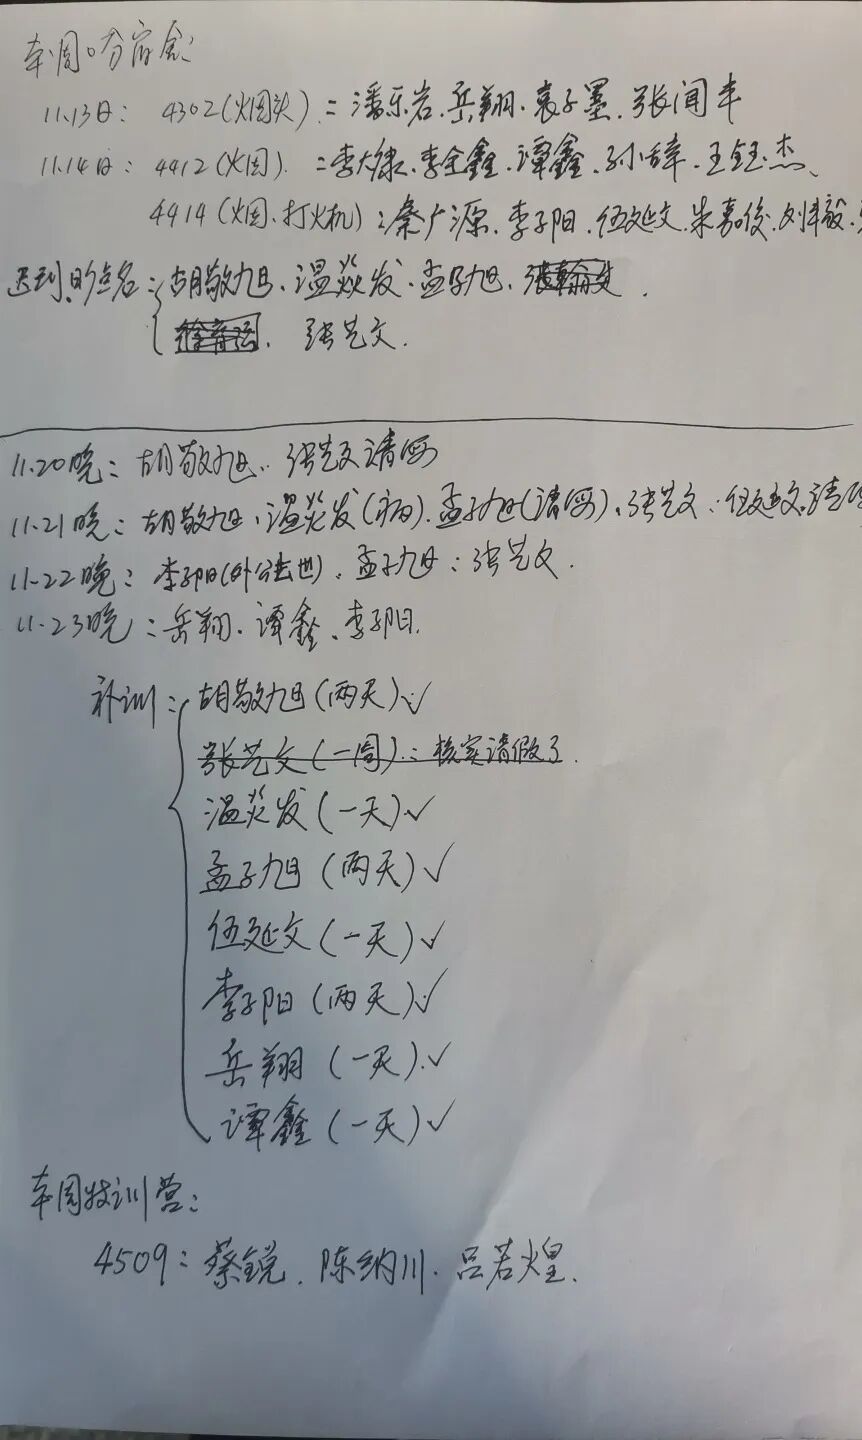 本周吸烟宿舍:
11.13日: 4302(烟头): 潘乐岩、岳翔、袁子墨、张闻丰
11.14日: 4412(烟): 李大康、李全鑫、谭鑫、孙辞、王钰杰、
4414(烟、打火机): 秦广源、李子阳、伍延文、朱嘉俊、刘毅、
迟到、晚点名: 胡敬旭、温焱发、孟子旭、
张艺文.
11.20晚: 胡敬旭、张艺文请假
11.21晚: 胡敬旭、温焱发(病)、孟子旭(请假)、张艺文、伍延文请假
11.22晚: 李子阳(外公去世)、孟子旭、张艺文.
11.23晚: 岳翔、谭鑫、李子阳.
补训: 胡敬旭(两天)✓
张艺文(一周): 核实请假了.
温焱发(一天)✓
孟子旭(两天)✓
伍延文(一天)✓
李子阳(两天)✓
岳翔(一天)✓
谭鑫(一天)✓
本周特训营:
4509: 蔡锐、陈纳川、吕若煌.